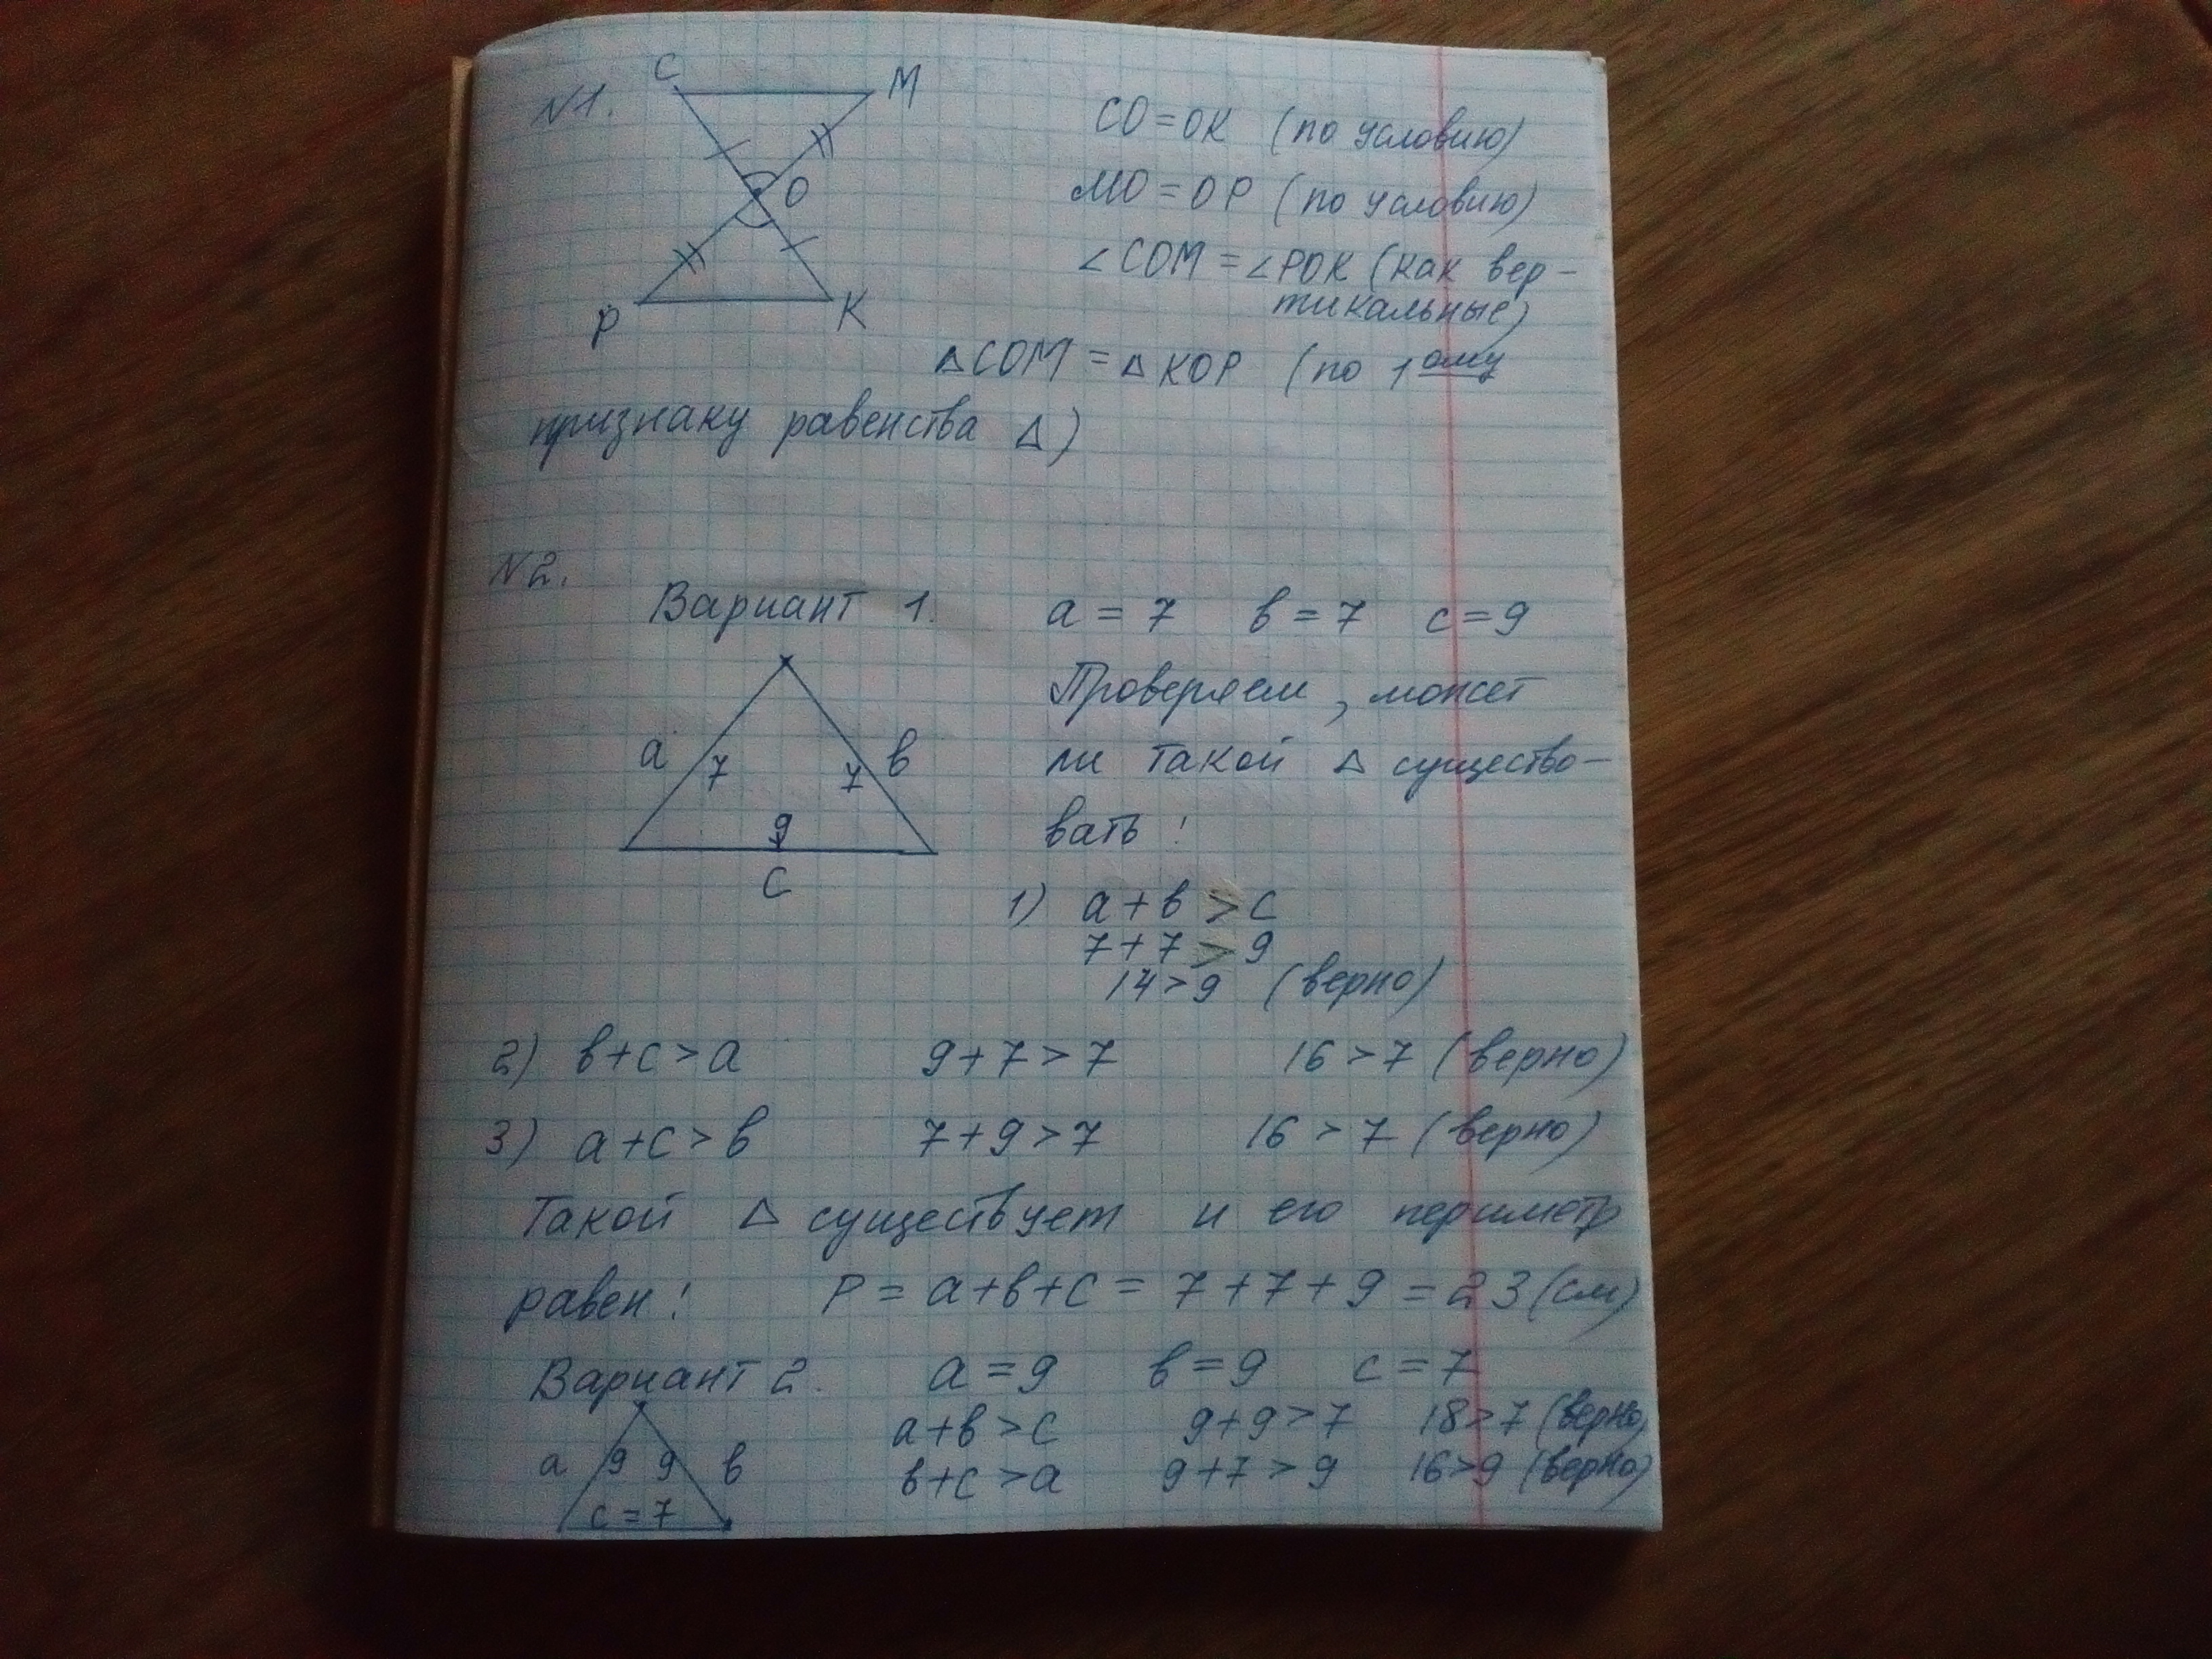 N1.
C
M
O
P
K
CO = OK (по условию)
MO = OP (по условию)
∠COM = ∠POK (как вер-
тикальные)
△COM = △KOP (по 1ому
признаку равенства △)
N2.
Вариант 1. a = 7 в = 7 c = 9
a 7 7 в
9
c
Проверяем, может
ли такой △ существо-
вать:
1) a + в > c
7 + 7 > 9
14 > 9 (верно)
2) в + c > a 9 + 7 > 7 16 > 7 (верно)
3) a + c > в 7 + 9 > 7 16 > 7 (верно)
Такой △ существует и его периметр
равен: P = a + в + c = 7 + 7 + 9 = 23 (см)
Вариант 2. a = 9 в = 9 c = 7
a 9 9 в
c = 7
a + в > c 9 + 9 > 7 18 > 7 (верно)
в + c > a 9 + 7 > 9 16 > 9 (верно)